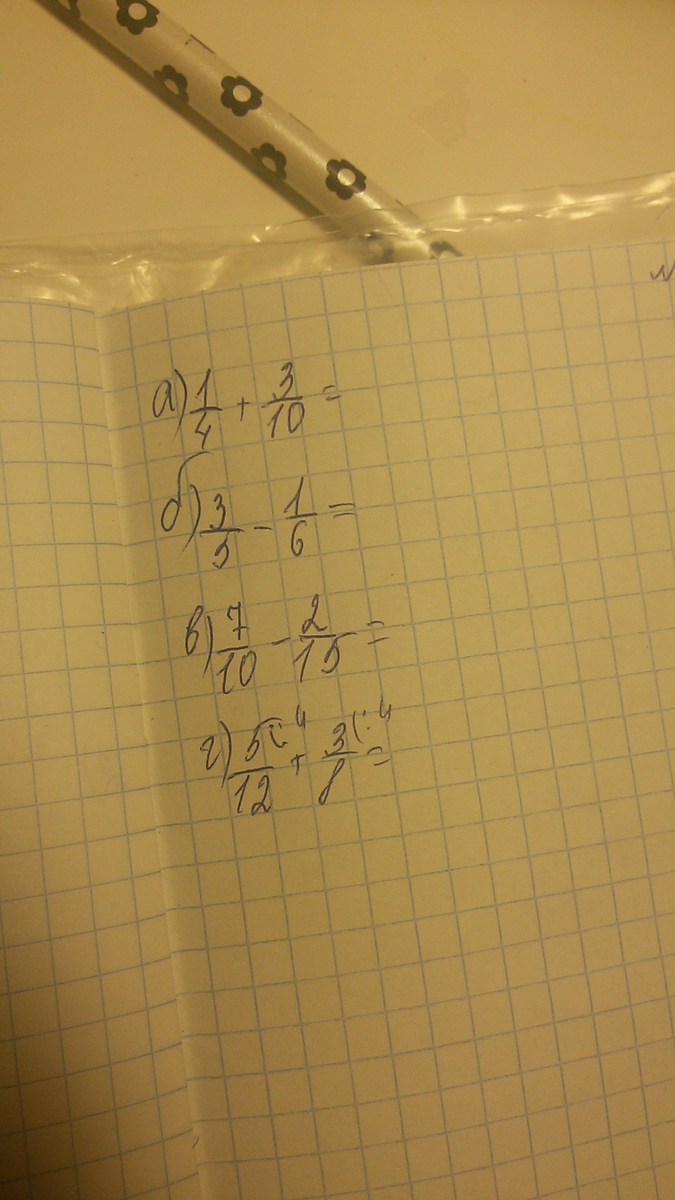 а) 1/4 + 3/10 =
б) 3/5 - 1/6 =
в) 7/10 - 2/15 =
г) 5/12 + 3/8 =